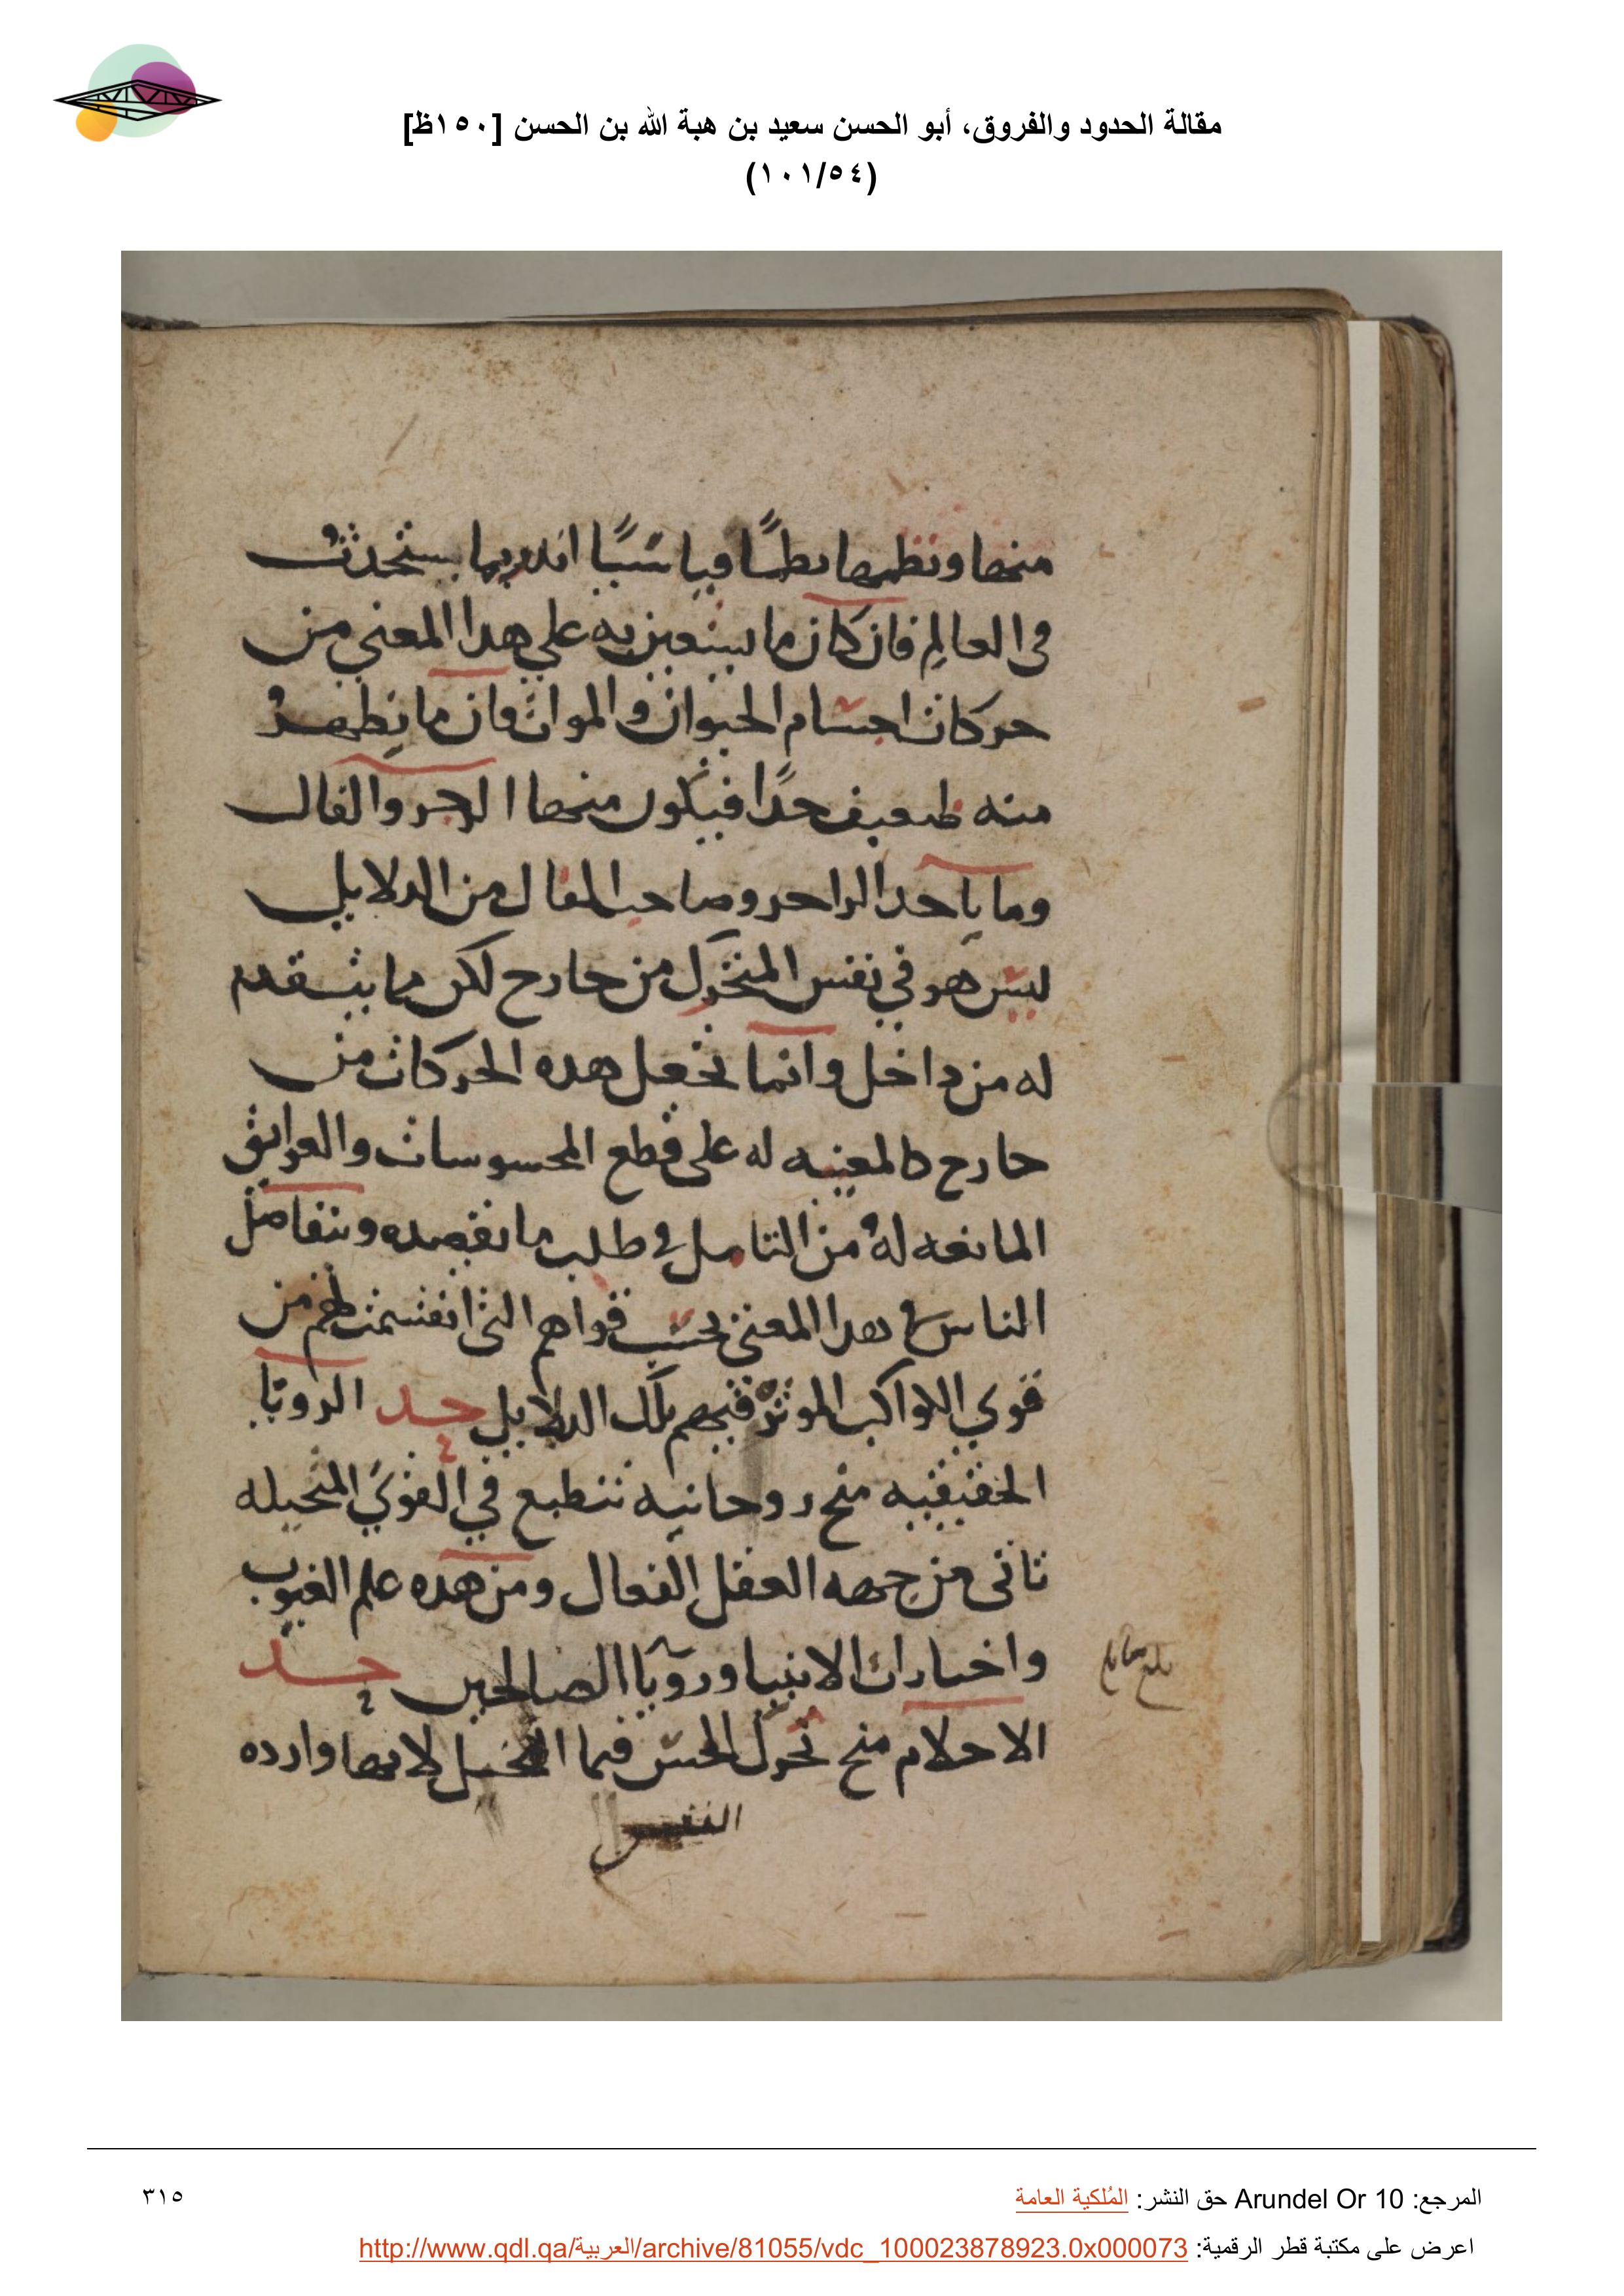 مقالة الحدود والفروق، أبو الحسن سعيد بن هبة الله بن الحسن [١٥٠ظ]
(١٠١/٥٤)
منها ونظمها نظمًا قياسيًا انذر بما يستحدث
فى العالم فان كان ما يستعين به علي هدا المعني من
حركات اجسام الحيوان والموات فان ما يظهر
منه ضعيف جدًا فيكون منها الزجر والفال
وما ياخد الزاجر وصاحب الفال من الدلايل
ليس هو في نفس المتحول من خارج لكن مما يتقدم
له من داخل وانما تجعل هده الحركات من
خارج كالمعينه له على قطع المحسوسات والعوايق
المانعه له من التامل في طلب ما يقصده ويتفاضل
الناس في هدا المعني بحسب قواهم التي انقسمت لهم من
قوي الكواكب الموثرة فيهم تلك الدلايل حد الرويا
الحقيقيه منح روحانيه تنطبع في القوي المتخيله
تاتى من جهه العقل الفعال ومن هده علم الغيوب
واخبارات الانبيا ورويا الصالحين حد
الاحلام منح تحول الحس فيما التخيل لانها وارده
النفس
المرجع: Arundel Or 10 حق النشر: المُلكية العامة
٣١٥
اعرض على مكتبة قطر الرقمية: http://www.qdl.qa/العربية/archive/81055/vdc_100023878923.0x000073